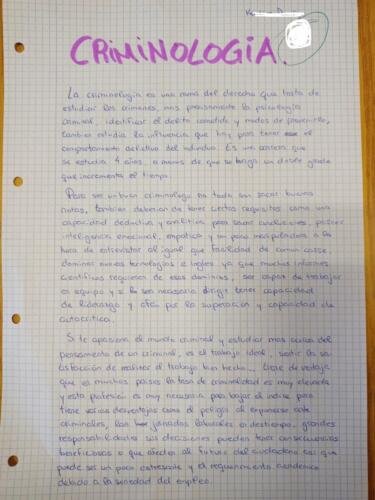 CRIMINOLOGIA.
La criminología es una rama del derecho que trata de
estudiar los crimenes, mas precisamente la psicología
criminal, identificar el delito cometido y modos de prevenirlo,
tambien estudia la influencia que hay para tener ese el
comportamiento delictivo del individuo. Es una carrera que
se estudia 4 años, a menos de que se tenga un doble grado
que incrementa el tiempo.
Para ser un buen criminologo no todo son sacar buenas
notas, tambien deberian de tener ciertos requisitos como una
capacidad deductiva y analitica para sacar conclusiones, poseer
inteligencia emocional, empatica y un poco manipuladora a la
hora de entrevistar al igual que facilidad de comunicarse,
dominar nuevas tecnologias e ingles ya que muchos informes
científicos requieren de esos dominios, ser capaz de trabajar
en equipo y si es necesario dirigir tener capacidad
de liderazgo y afan por la superación y capacidad de
autocritica.
Si te apasiona el mundo criminal y estudiar mas acerca del
pensamiento de un criminal, es el trabajo ideal, sentir la sa-
tisfacción de realizar el trabajo bien hecho... tiene de ventaja
que en muchos paises la tasa de criminalidad es muy elevada
y esta profesión es muy necesaria para bajar el indice pero
tiene varias desventajas como el peligro al exponerse ante
criminales, las jornadas laborales a destiempo, grandes
responsabilidades sus decisiones pueden tener consecuencias
beneficiosas o que afecten al futuro del ciudadano asi que
puede ser un poco estresante y el requerimiento academico
debido a la seriedad del empleo.